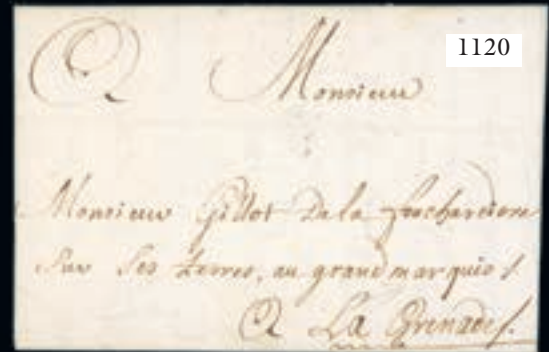 1120
A Monsieur
Monsieur Gillot De la fouchardiere
Sur Ses terres, au grand marquis /.
A La Grenade /.